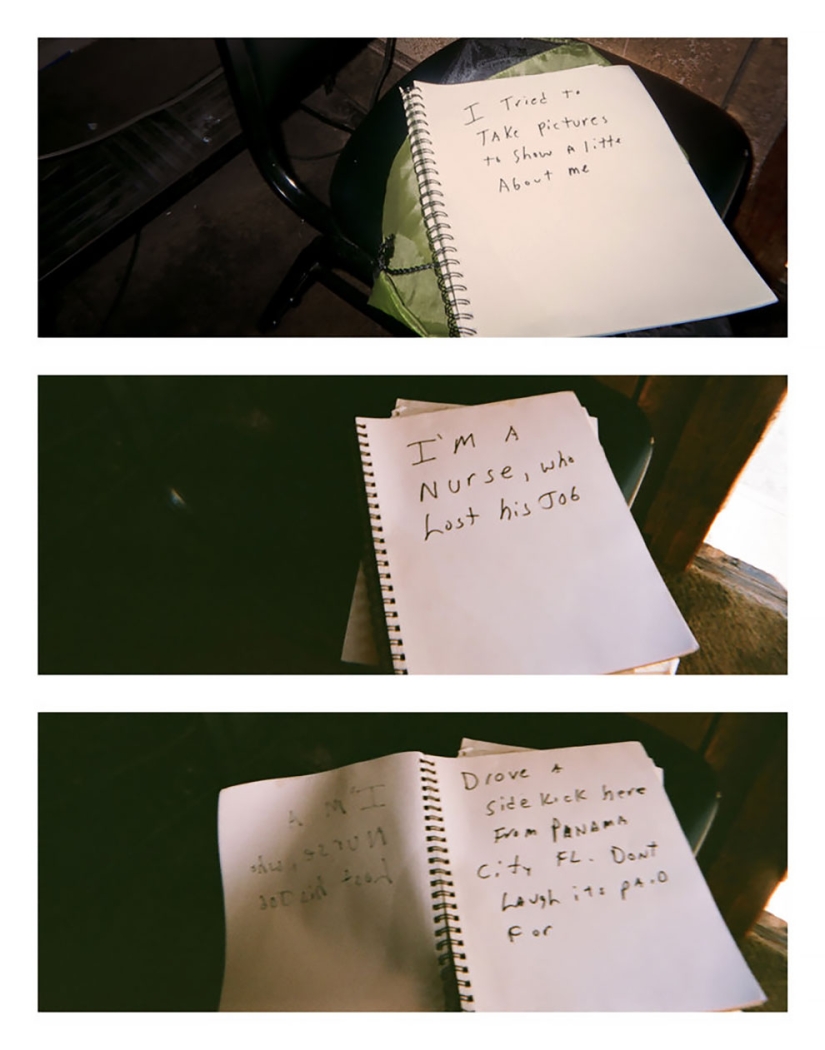 I Tried to
TAKE pictures
to show A little
About me
I'M A
Nurse, who
Lost his Job
Drove A
side kick here
From PANAMA
City FL. Dont
Laugh its pAiD
For
I'M A
Nurse, who
Lost his Job